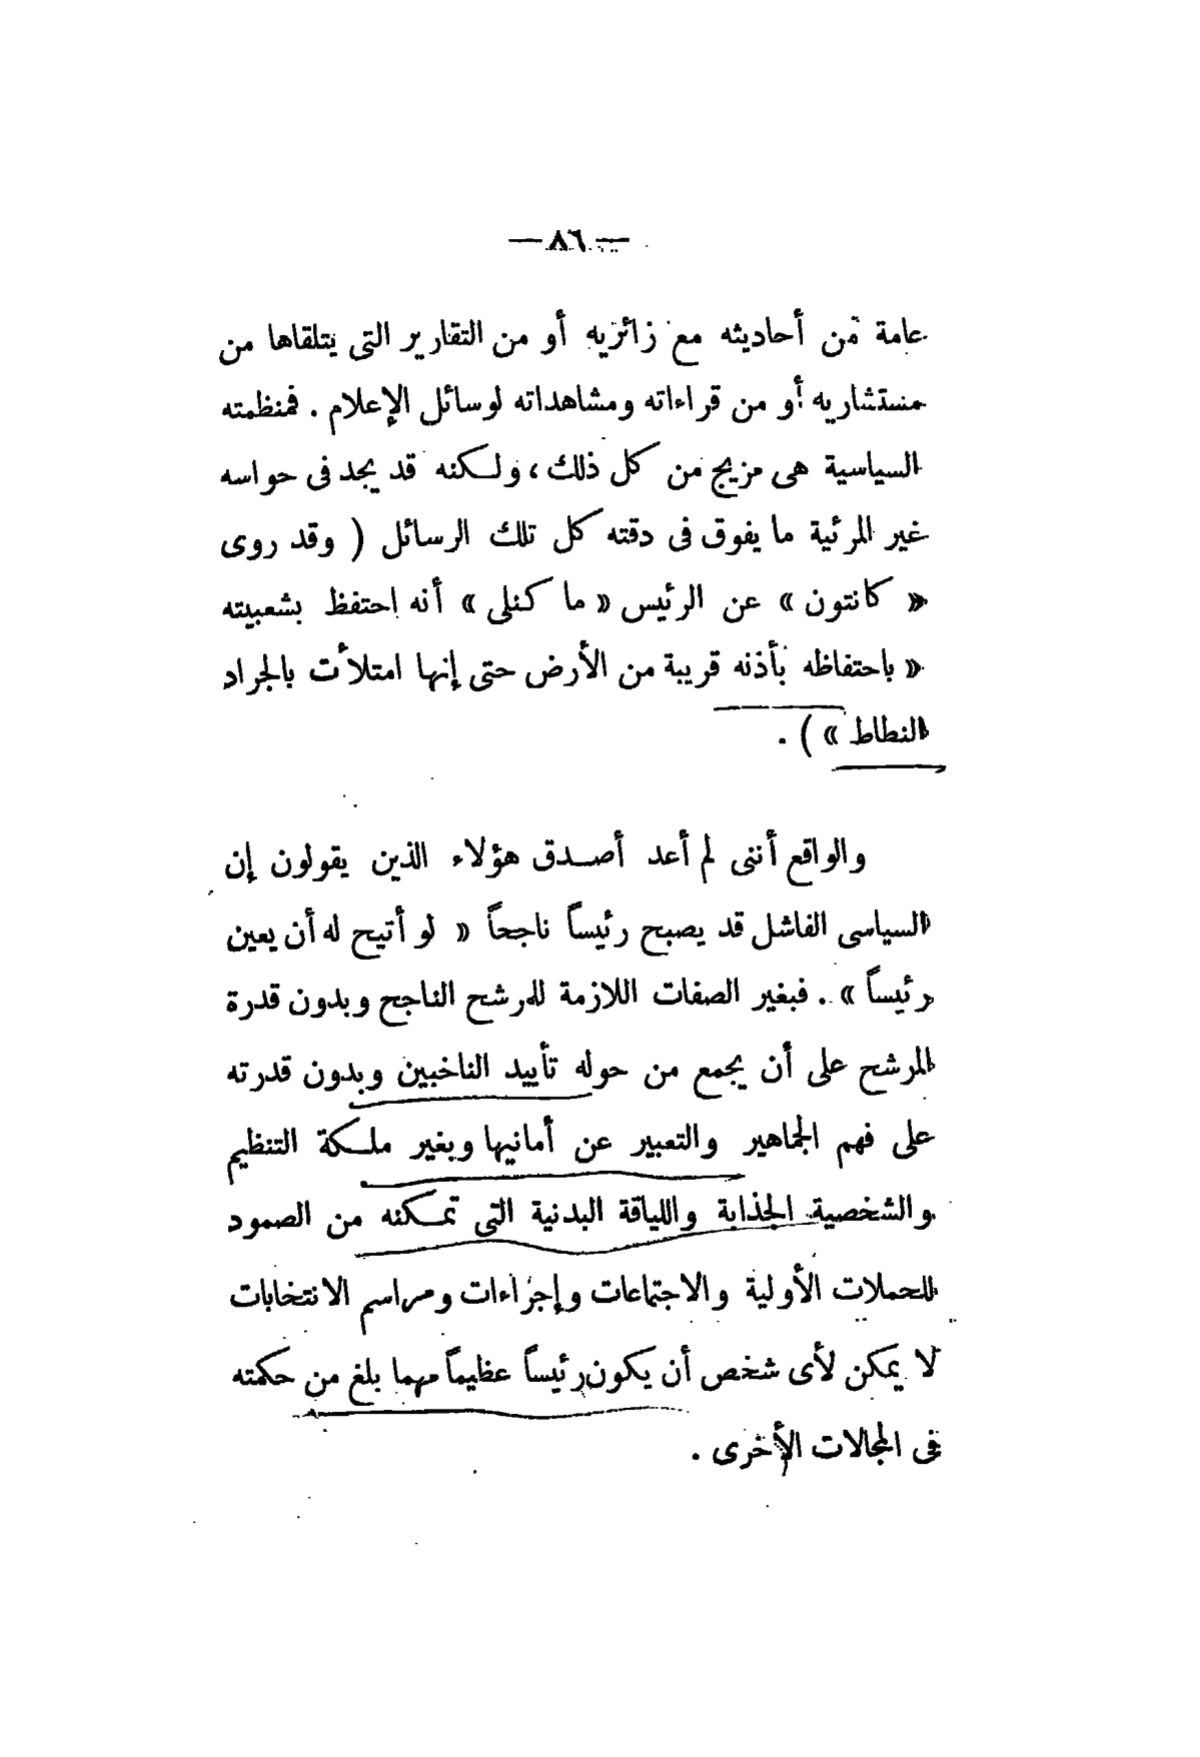 — ٨٦ —
عامة من أحاديثه مع زائريه أو من التقارير التى يتلقاها من
مستشاريه أو من قراءاته ومشاهداته لوسائل الإعلام . فمنظمته
السياسية هى مزيج من كل ذلك ، ولكنه قد يجد فى حواسه
غير المرئية ما يفوق فى دقته كل تلك الرسائل ( وقد روى
« كانتون » عن الرئيس « ما كنلى » أنه احتفظ بشعبيته
« باحتفاظه بأذنه قريبة من الأرض حتى إنها امتلأت بالجراد
النطاط » ) .
والواقع أننى لم أعد أصدق هؤلاء الذين يقولون إن
السياسى الفاشل قد يصبح رئيساً ناجحاً « لو أتيح له أن يعين
رئيساً » . فبغير الصفات اللازمة للمرشح الناجح وبدون قدرة
المرشح على أن يجمع من حوله تأييد الناخبين وبدون قدرته
على فهم الجماهير والتعبير عن أمانيها وبغير ملكة التنظيم
والشخصية الجذابة واللياقة البدنية التى تمكنه من الصمود
للحملات الأولية والاجتماعات وإجراءات ومراسم الانتخابات
لا يمكن لأى شخص أن يكون رئيساً عظيماً مهما بلغ من حكمته
فى المجالات الأخرى .